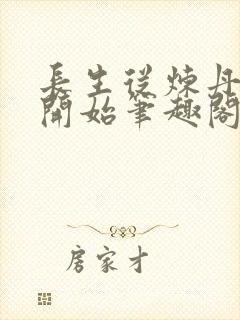 長生從煉丹
開始筆趣閣
房家才